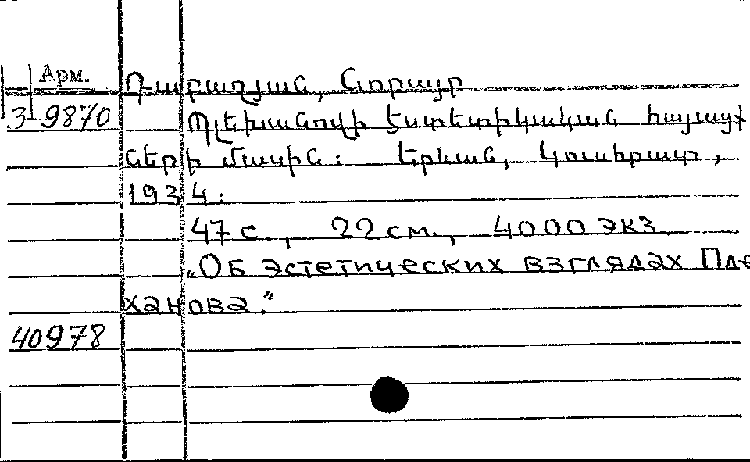 Арм.
Դաբաղյան, Նորայր
3 9870
Պլեխանովի էստետիկական հայացք
ների մասին: Երևան, Կուսհրատ,
1934:
47 с., 22 см., 4000 экз
„Об эстетических взглядах Пле
ханова."
40978